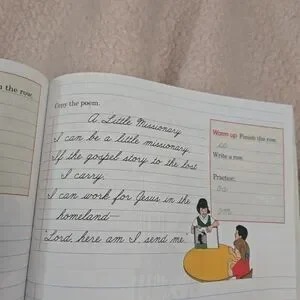 n the row.
Copy the poem.
A Little Missionary
I can be a little missionary
If the gospel story to the lost
I carry.
I can work for Jesus in the
homeland—
"Lord, here am I, send me."
Warm up Finish the row.
Write a row.
Practice: